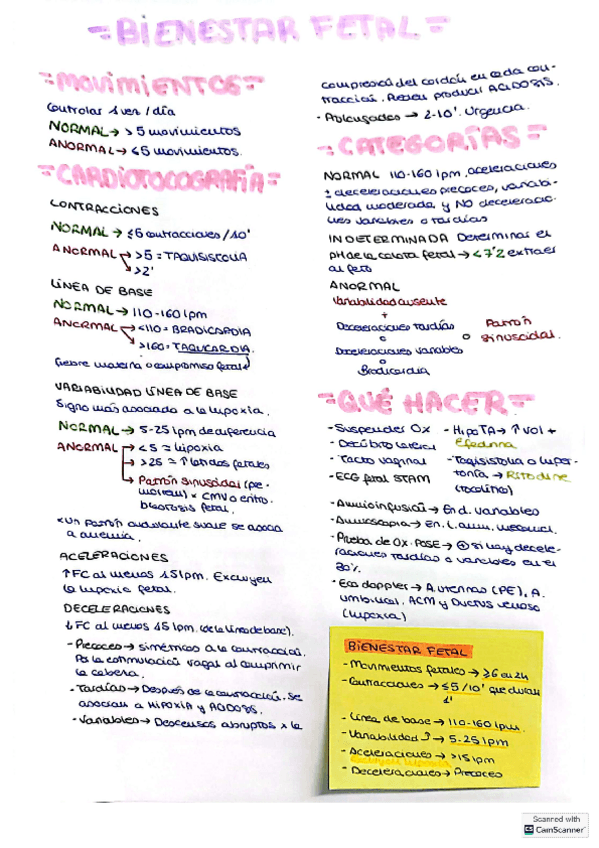 =BIENESTAR FETAL=
=MOVIMIENTOS=
Controlar 1 vez / día
NORMAL → > 5 movimientos
ANORMAL → < 5 movimientos.
=CARDIOTOCOGRAFÍA=
CONTRACCIONES
NORMAL → ≤ 6 contracciones / 10'
ANORMAL → > 5 = TAQUISISTOLIA
→ > 2'
LÍNEA DE BASE
NORMAL → 110-160 lpm
ANORMAL → < 110 = BRADICARDIA
→ > 160 = TAQUICARDIA.
(fiebre materna o compromiso fetal)
VARIABILIDAD LÍNEA DE BASE
Signo más asociado a la hipoxia.
NORMAL → 5-25 lpm de diferencia
ANORMAL → < 5 = hipoxia
→ > 25 = ↑ latidos fetales
→ Patrón sinusoidal (pre
mortem) × CMV o entro
blastosis fetal.
* Un patrón ondulante suele se asocia
a anemia.
ACELERACIONES
↑ FC al menos 15 lpm. Excluyen
la hipoxia fetal.
DECELERACIONES
↓ FC al menos 15 lpm. (de la línea de base).
- Precoces → simétricas a la contracción.
Por la estimulación vagal al comprimir
la cabeza.
- Tardías → Después de la contracción. Se
asocian a HIPOXIA y ACIDOSIS.
- Variables → Descensos abruptos × la
compresión del cordón en cada con-
tracción. Pueden producir ACIDOSIS.
- Prolongadas → 2-10'. Urgencia.
=CATEGORÍAS=
NORMAL 110-160 lpm, aceleraciones
± deceleraciones precoces, variabi-
lidad moderada y NO deceleracio-
nes variables o tardías
INDETERMINADA Determinar el
pH de la calota fetal → < 7'2 extraer
al feto
ANORMAL
Variabilidad ausente
+
Deceleraciones tardías
o
Deceleraciones variables
o
Bradicardia
o Patrón
sinusoidal.
=QUÉ HACER=
- Suspender OX
- Decúbito lateral
- Tacto vaginal
- ECG fetal STAM
- HipoTA → ↑ Vol +
Efedrina
- Taqisistolia o hiper-
tonía → Ritodrine
(tocolítico)
- Amnioinfusión → En d. variables
- Amnioscopia → En l. amn. meconial.
- Prueba de OX. POSE → ⊕ si hay decele-
raciones tardías o variables en el
30%.
- Eco doppler → A. uterinas (PE), A.
umbilical, ACM y Ductus venoso
(hipoxia)
BIENESTAR FETAL
- Movimientos fetales → ≥ 6 en 2h
- Contracciones → ≤ 5 / 10' que duran
1'
- Línea de base → 110-160 lpm.
- Variabilidad → 5-25 lpm
- Aceleraciones → > 15 lpm
Excluyen hipoxia
- Deceleraciones → Precoces
Scanned with
CamScanner